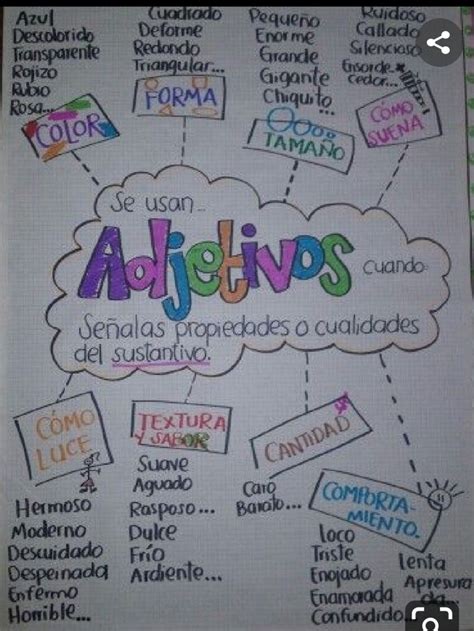 Azul
Descolorido
Transparente
Rojizo
Rubio
Rosa...
COLOR
Cuadrado
Deforme
Redondo
Triangular...
FORMA
Pequeño
Enorme
Grande
Gigante
Chiquito...
TAMAÑO
Ruidoso
Callado
Silencioso
Ensorde-
cedor...
CÓMO
SUENA
Se usan...
Adjetivos
cuando
Señalas propiedades o cualidades
del sustantivo.
CÓMO
LUCE
Hermoso
Moderno
Descuidado
Despeinada
Enfermo
Horrible...
TEXTURA
Y SABOR
Suave
Aguado
Rasposo...
Dulce
Frío
Ardiente...
CANTIDAD
Caro
Barato...
COMPORTA-
MIENTO.
loco
Triste
Enojado
Enamorada
Confundido...
lenta
Apresura
da...